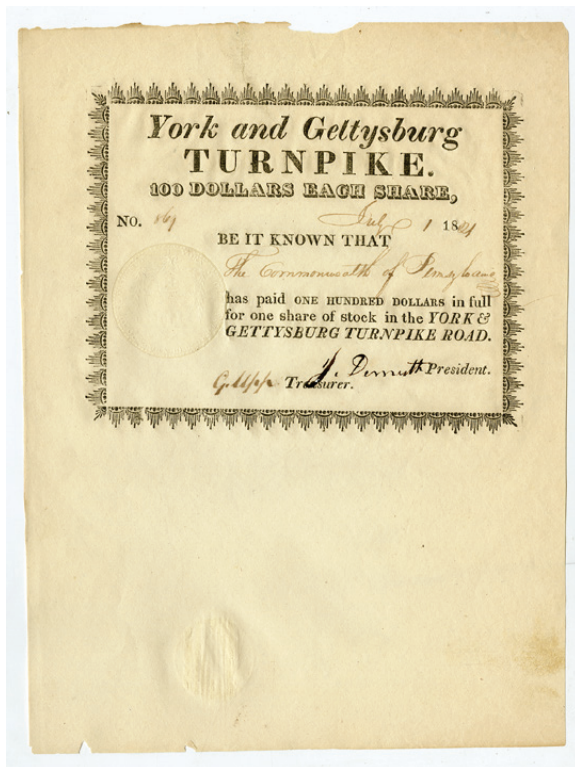 York and Gettysburg
TURNPIKE.
100 DOLLARS EACH SHARE,
No. 861 July 1 1821
BE IT KNOWN THAT
The Commonwealth of Pennsylvania
has paid ONE HUNDRED DOLLARS in full
for one share of stock in the YORK &
GETTYSBURG TURNPIKE ROAD.
President.
Treasurer.